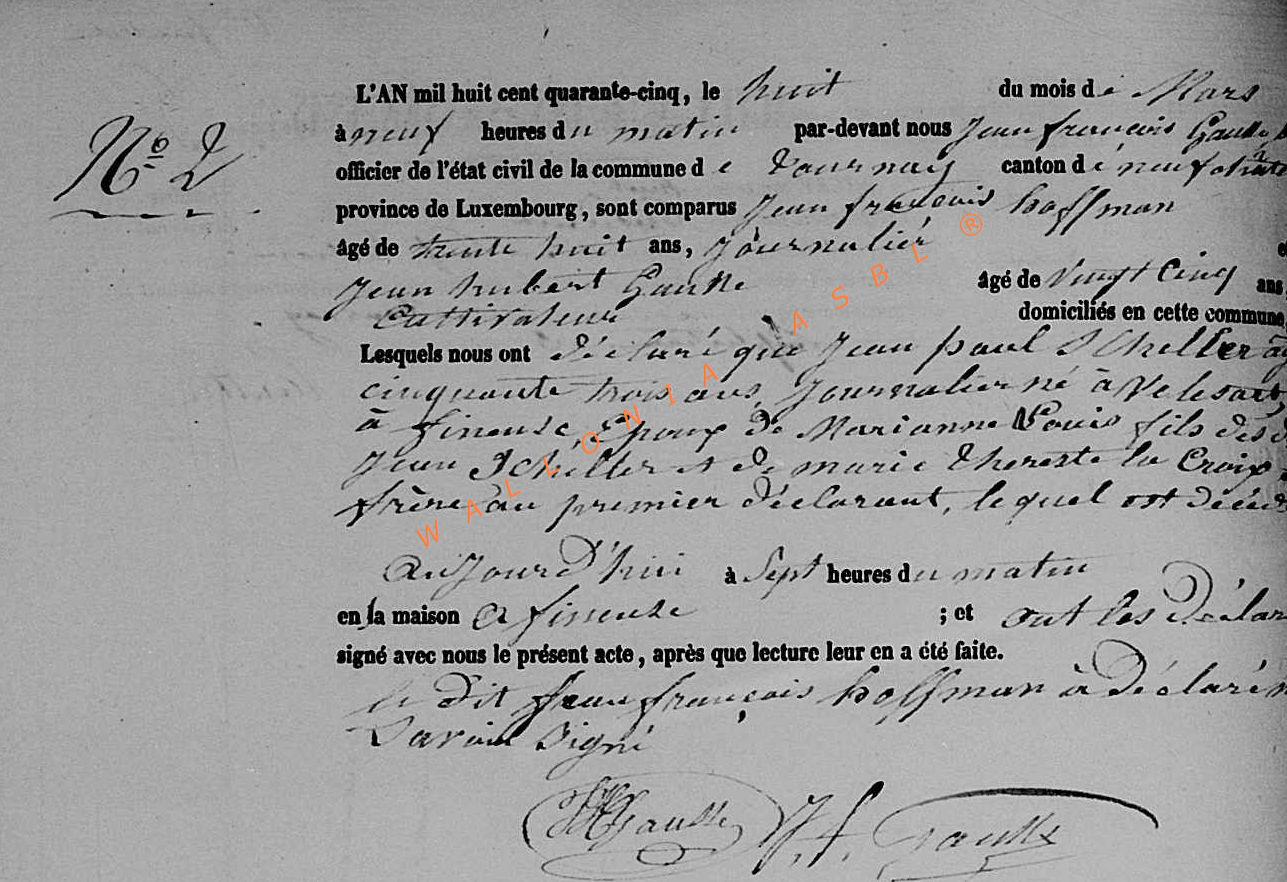 L'AN mil huit cent quarante-cinq, le huit du mois de Mars
No 2
à neuf heures du matin par-devant nous Jean françois Gaulle
officier de l'état civil de la commune de tournay canton de neufchat
province de Luxembourg, sont comparus Jean françois hoffman
âgé de trente huit ans, Journalier e
Jean hubert Gaulle âgé de vingt cinq ans
Cultivateur domiciliés en cette commune,
Lesquels nous ont déclaré què Jean paul Scheller ag
cinquante trois ans, Journalier né à Velosart,
à fineuse, Epoux de Marianne Louis fils des d
Jean Scheller et de marie thereste la Croix
frère au premier déclarant, le quel est décéd
aujourd'hui à Sept heures du matin
en la maison a fineuse ; et ont les déclar
signé avec nous le présent acte, après que lecture leur en a été faite.
le dit Jean françois hoffman à déclaré n
Savoir Signé
JHGaulle J. f. Gaulle
WALLONIA ASBL ®